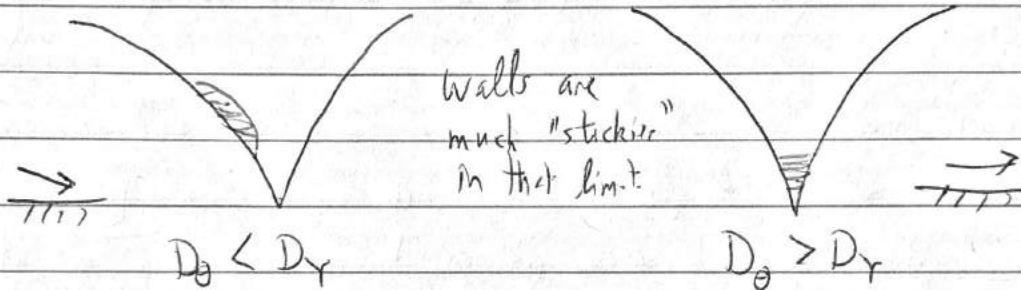 walls are
much "stickier"
in that limit
D_θ < D_r
D_θ > D_r